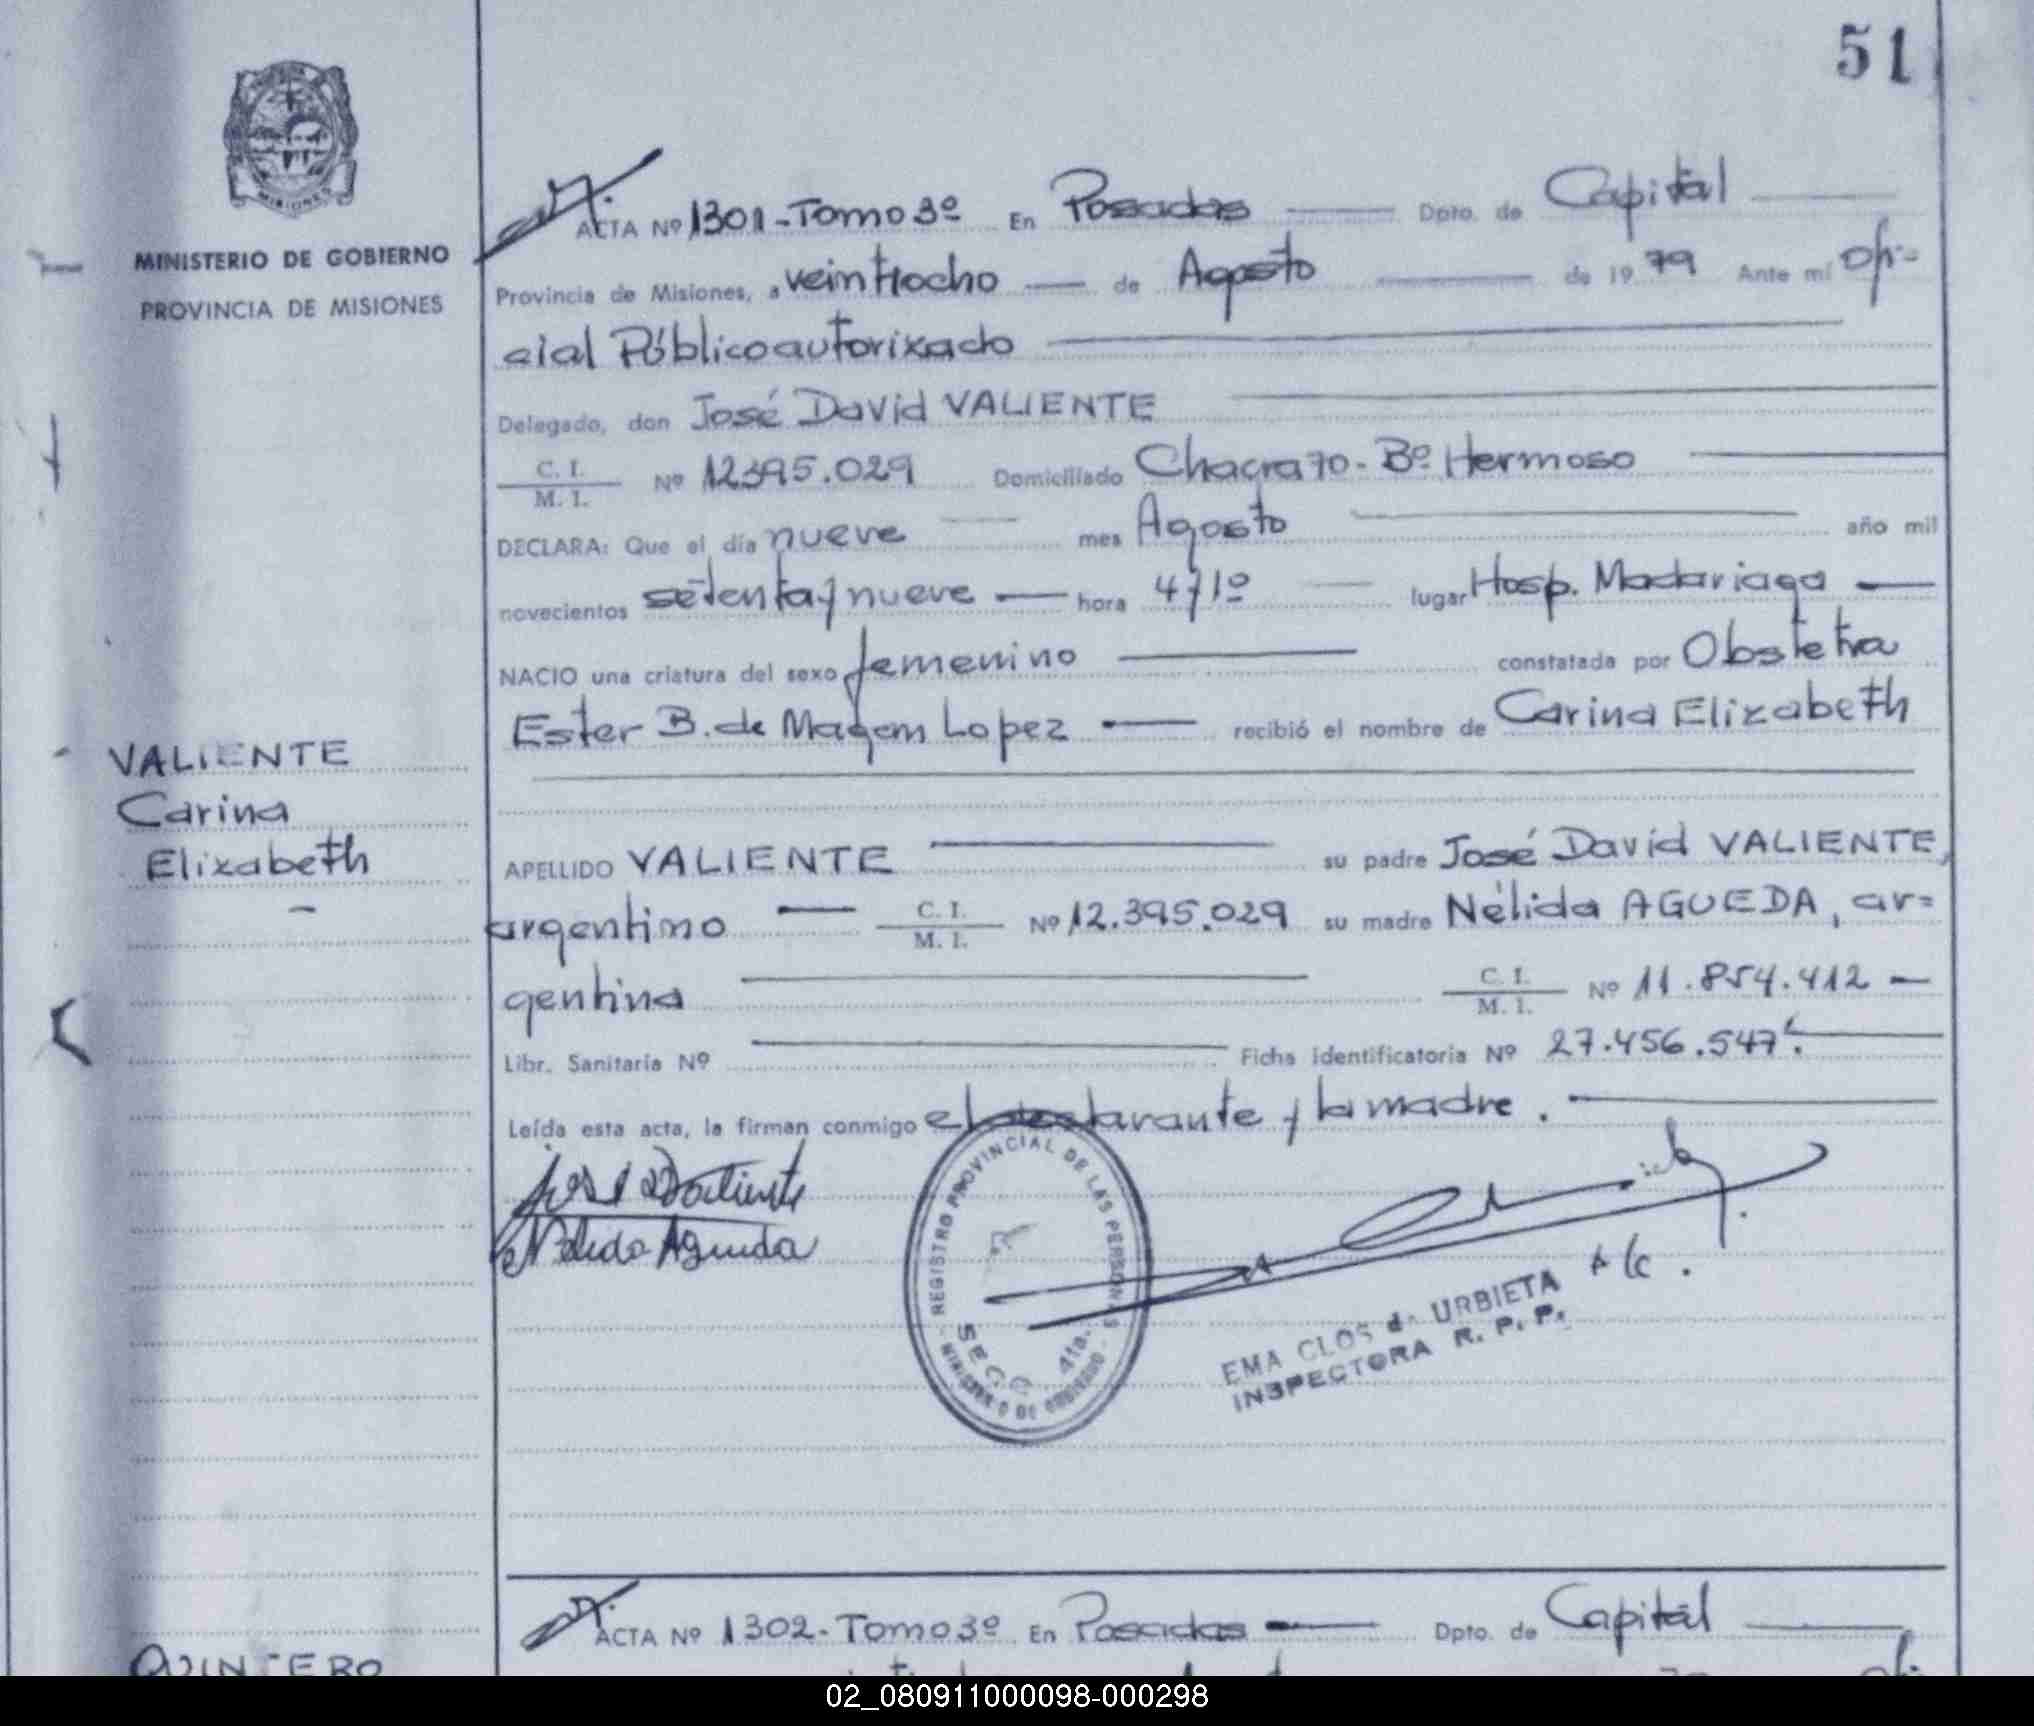 51
MINISTERIO DE GOBIERNO
PROVINCIA DE MISIONES
VALIENTE
Carina
Elizabeth
ACTA Nº 1301-Tomo 3º En Posadas Dpto. de Capital
Provincia de Misiones, a veintiocho de Agosto de 1979 Ante mí Ofi=
cial Público autorizado
Delegado, don José David VALIENTE
C. I.
M. I. Nº 12395.029 Domiciliado Chacra 70. Bº Hermoso
DECLARA: Que el día nueve mes Agosto año mil
novecientos setenta y nueve hora lugar Hosp. Madariaga
NACIO una criatura del sexo femenino constatada por Obstetra
Ester B. de Magem Lopez recibió el nombre de Carina Elizabeth
APELLIDO VALIENTE su padre José David VALIENTE,
argentino C. I.
M. I. Nº 12.395.029 su madre Nélida AGUEDA, ar=
gentina C. I.
M. I. Nº 11.854.412
Libr. Sanitaria Nº Ficha identificatoria Nº 27.456.547.
Leída esta acta, la firman conmigo el declarante y la madre.
José D Valiente
Nelida Agueda
REGISTRO PROVINCIAL DE LAS PERSONAS
SECC. 4ta.
MINISTERIO DE GOBIERNO
A/c.
EMA CLOS de URBIETA
INSPECTORA R. P. P.
ACTA Nº 1302-Tomo 3º En Posadas Dpto. de Capital
QUINTERO
02_080911000098-000298